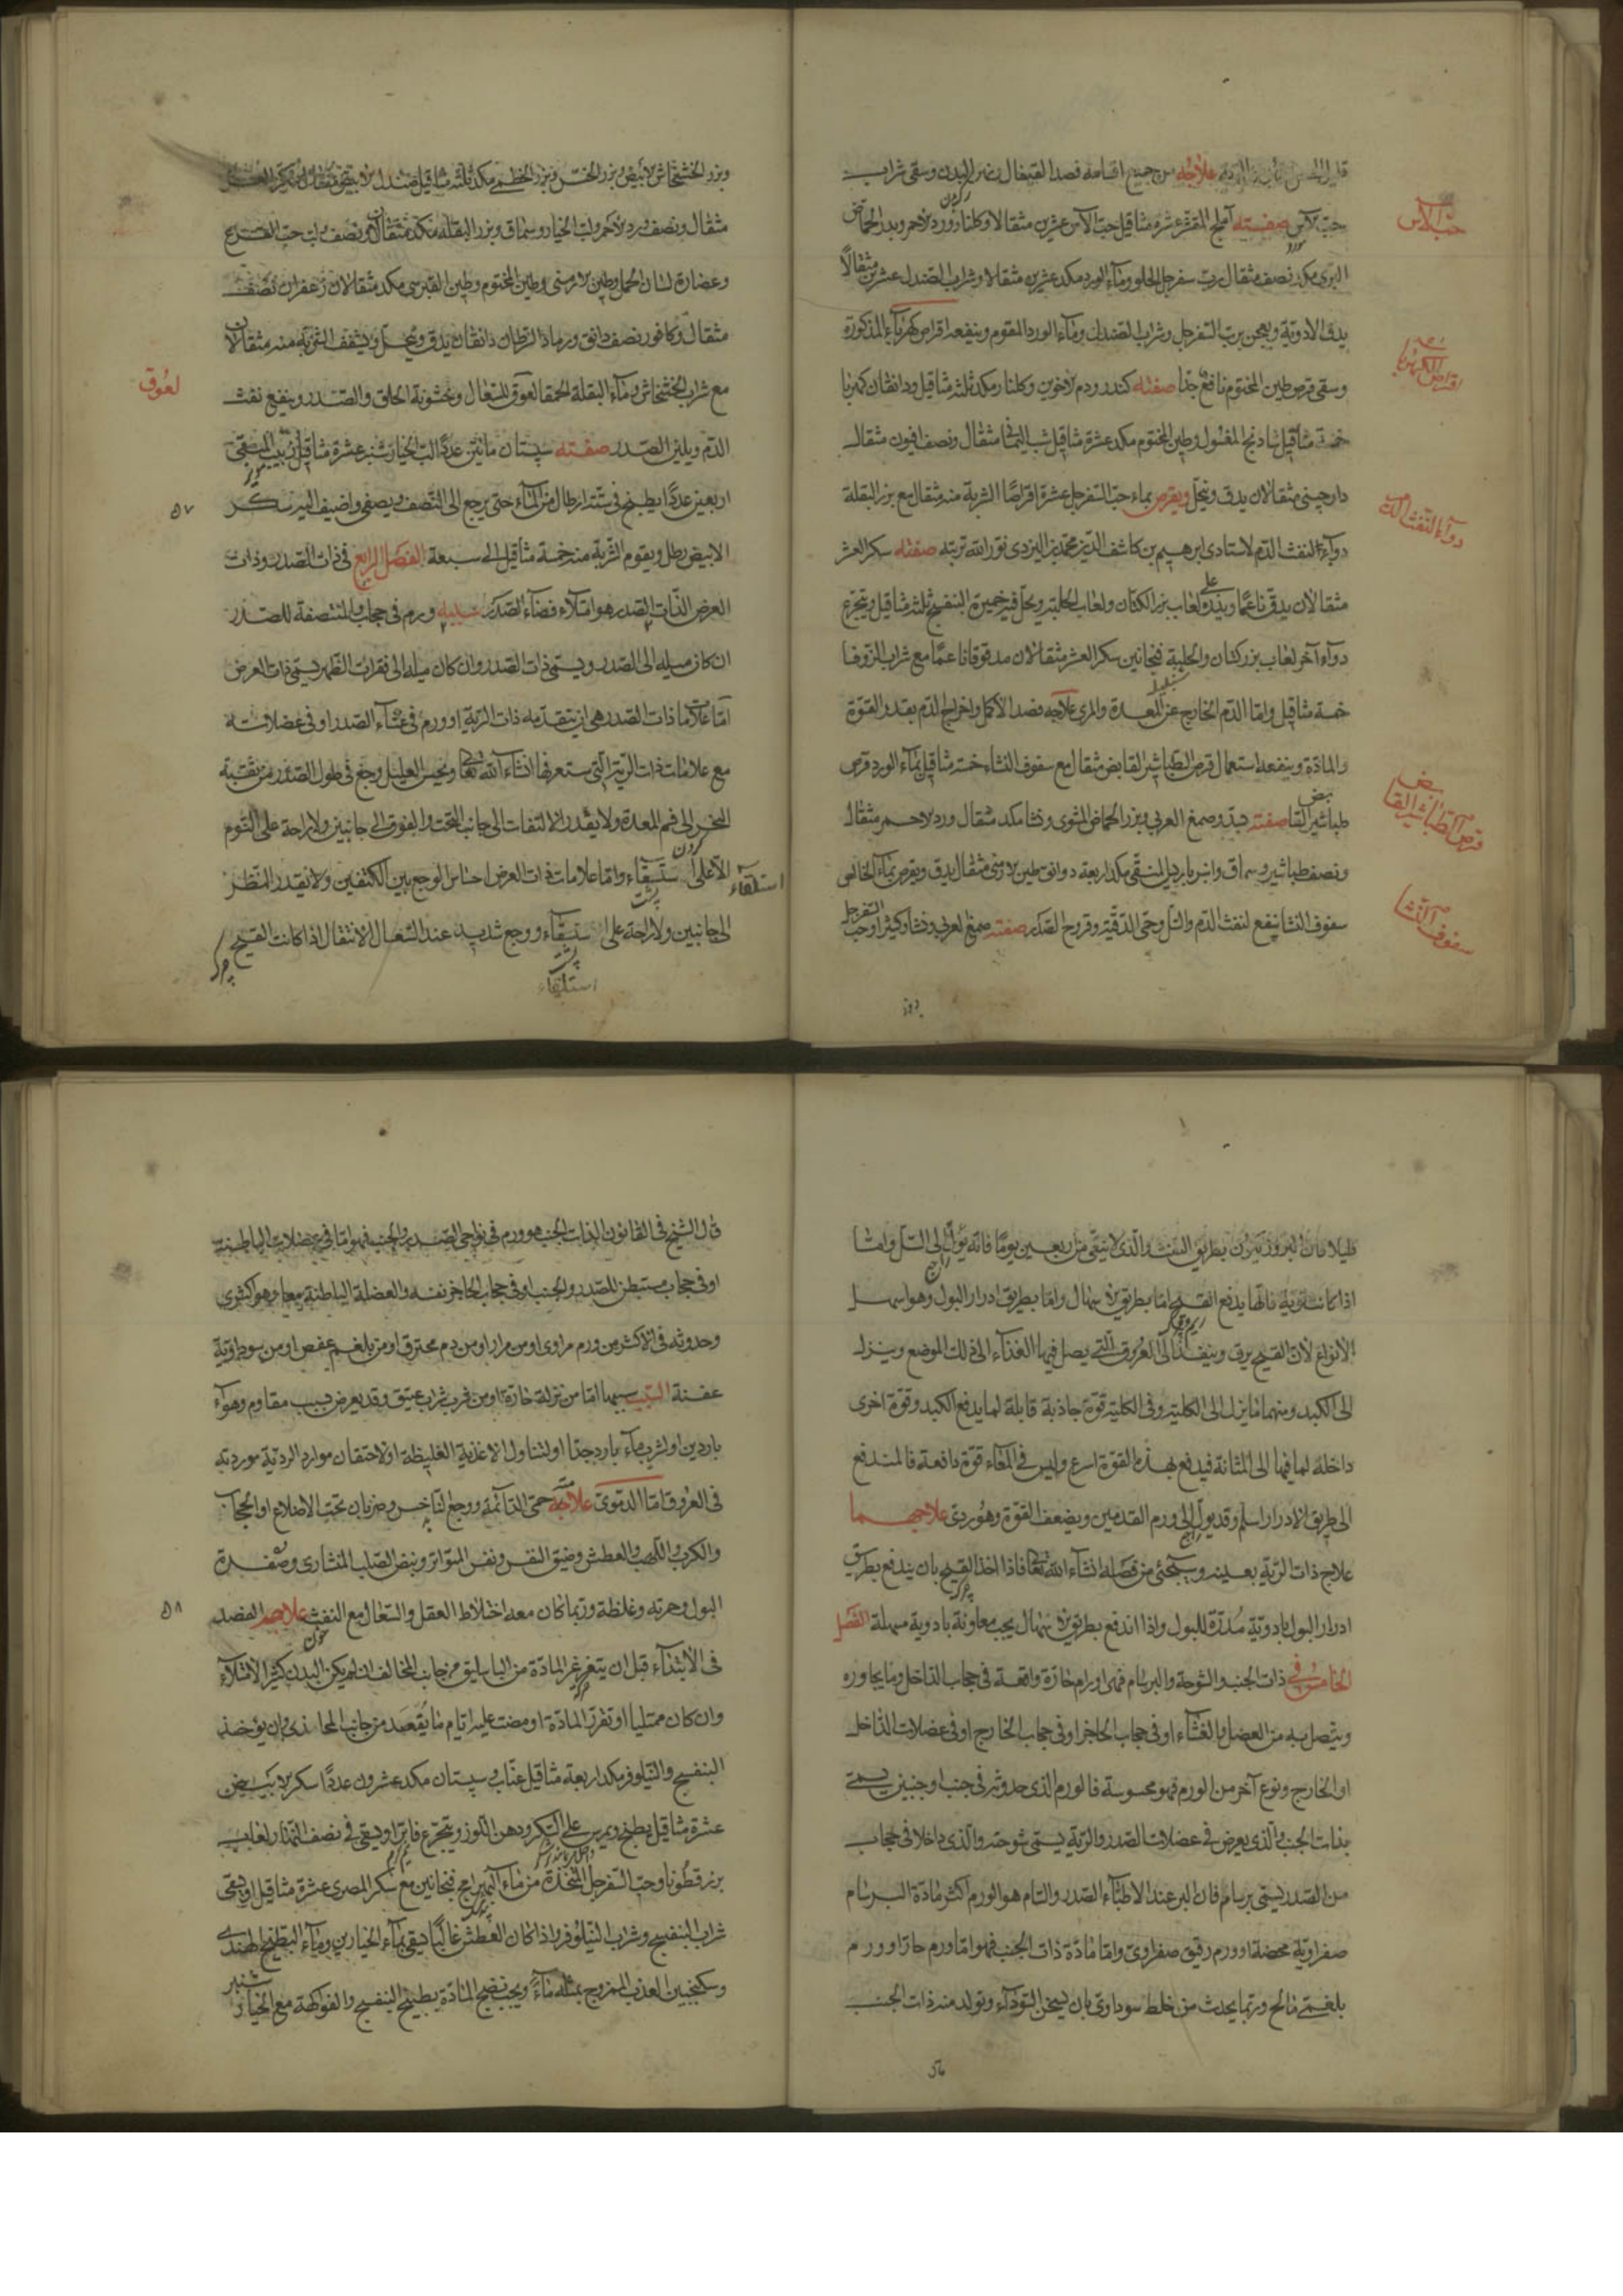 علاجه من جميع اقسامه فصد القيفال و سقى شراب
حب الآس صفته حب الآس عشرين مثقالا وكلنار و ورد الاحمر وبذر الحماض
البرى مكد نصف مثقال رب سفرجل الحلو وماء الورد مكد عشرين مثقالا وشراب الصندل عشرين مثقالا
يدق الادوية ويعجن برب السفرجل وشراب الصندل وماء الورد المقوم وينفعه اقراص كهرباء المذكورة
وسقى قرص طين المختوم نافع جدا صفته كندر ودم الاخوين وكلنار مكد ثلثه مثاقيل ودانقان كهربا
خمسة مثاقيل شادنج المغسول وطين المختوم مكد عشرة مثاقيل شب اليمانى مثقال ونصف افيون مثقال
دارچينى مثقالان يدق وينخل ويقرص بماء حب السفرجل عشرة اقراصا الشربة منه مثقال مع بزر البقلة
دواء النفث الدم لاستادى ابرهيم بن كاشف الدين محمد اليزدى نور الله تربته صفته سكر العشر
مثقالان يدق ناعما ويذر على لعاب بزر الكتان ولعاب الحلبة ويحل فيه خميرة البنفسج ثلثه مثاقيل ويتجرع
دواء آخر لعاب بزر كتان والحلبة فنجانين سكر العشر مثقالان مدقوقا ناعما مع شراب الزوفا
خمسة مثاقيل واما الدم الخارج عن المعدة والمرى علاجه فصد الاكحل واخراج الدم بقدر القوة
والمادة وينفعه استعمال قرص الطباشير القابض مثقال مع سفوف النشاء خمسة مثاقيل بماء الورد قرص
طباشير القابض صفته وصمغ العربى وبزر الحماض المشوى ونشا مكد مثقال ورد الاحمر مثقال
ونصف طباشير وسماق وانبرباريس المنقى مكد اربعة دوانق طين الارمنى مثقال يدق ويقرص بماء الخالص
سفوف النشا ينفع لنفث الدم والسل وحمى الدقية وقروح الصدر صفته صمغ العربى ونشا وكثيرا وحب السفرجل
حب الآس
اقراص الكهربا
دواء النفث الدم
قرص الطباشير القابض
سفوف النشا
وبزر الخشخاش الابيض وبزر الخس وبزر الخطمى مكد ثلثه مثاقيل صندل الابيض
مثقال ونصف ورد الاحمر ولب الخيار وسماق وبزر البقلة مكد مثقالان ونصف لب حب القرع
وعصارة لسان الحمل وطين الارمنى وطين المختوم وطين القبرسى مكد مثقالان زعفران نصف
مثقال وكافور نصف دانق ورماد السرطان دانقان يدق وينخل الشربة منه مثقالان
مع شراب الخشخاش وماء البقلة الحمقا لعوق للسعال وخشونة الحلق والصدر وينفع نفث
الدم ويلين الصدر صفته سپستان مائتين عددا لب الخيار شنبر عشرة مثاقيل زبيب المنقى
اربعين عددا يطبخ فى ستة ارطال من الماء حتى يرجع الى النصف ويصفى واضيف اليه سكر
الابيض رطل ويقوم الشربة منه خمسة مثاقيل الى سبعة الفصل الرابع فى ذات الصدر وذات
العرض الذات الصدر هو امتلاء فضاء الصدر سببه ورم فى حجاب المنتصفة للصدر
ان كان ميله الى الصدر ويسمى ذات الصدر وان كان ميله الى فقرات الظهر يسمى ذات العرض
اما علامات ذات الصدر هى ان يتقدمه ذات الرية او ورم فى غشاء الصدر او فى عضلاته
مع علامات ذات الرية التى ستعرفها انشاء الله تعالى ويحس العليل وجع فى طول الصدر من نقبة
النحر الى فم المعدة ولا يقدر الالتفات الى جانب التحت والفوق الى جانبين ولا راحة على النوم
الا على ستسقاء واما علامات ذات العرض احتباس الوجع بين الكتفين ولا يقدر النظر
الى جانبين ولا راحة على ستسقاء ووجع شديد عند السعال الانتقال اذا كانت القيح
استلقاء
استلقاء
لعوق
٥٧
بطريق النفث والذى لا ينقى من اربعين يوما فانه يول الى السل واما
اذا كانت قوية فانها يدفع القيح اما بطريق الاسهال واما بطريق ادرار البول وهو اسهل
الانواع لان القيح يرق وينفذ الى العروق التى يصل فيها الغذاء الى ذلك الموضع وينزل
الى الكبد ومنهما ما ينزل الى الكلية وفى الكلية قوة جاذبة قابلة لما يدفع الكبد وقوة اخرى
داخلة لما فيها الى المثانة فيدفع بهذه القوة اسرع وليس فى المعاء قوة دافعة فالمندفع
الى طريق الادرار اسلم وقد يول الى ورم القدمين ويضعف القوة وهو ردى علاجهما
علاج ذات الرية بعينه وسيجئ من فصله انشاء الله تعالى فاذا اخذ القيح بان يندفع بطريق
ادرار البول بادوية مدرة للبول واذا اندفع بطريق الاسهال يجب معاونة بادوية مسهلة الفصل
الخامس فى ذات الجنب والشوصة والبرسام فهى اورام حارة واقعة فى حجاب الداخل وما يجاوره
ويتصل به من العضل والغشاء او فى حجاب الحاجز او فى حجاب الخارج او فى عضلات الداخل
او الخارج ونوع آخر من الورم فهو محسوسة فالورم الذى حدوثه فى جنب او جنبين يسمى
بذات الجنب والذى يعرض فى عضلات الصدر والرية يسمى شوصه والذى داخلا فى حجاب
من الصدر يسمى برسام فان البر عند الاطباء الصدر والسام هو الورم اكثر مادة البرسام
صفراوية محضة او ورم رقيق صفراوى واما مادة ذات الجنب فهو اما ورم حار او ورم
بلغمى مالح وربما يحدث من خلط سوداوى بان يسخن السوداء وتولد منه ذات الجنب
قال الشيخ فى القانون الذات الجنب هو ورم فى نواحى الصدر والجنب فهو اما فى عضلات الباطنة
او فى حجاب مستبطن للصدر والجنب او فى حجاب الحاجز نفسه والعضلة الباطنة معا وهو اكثرى
وحدوثه فى الاكثر من ورم مراوى او من مرار او من دم محترق او من بلغم عفص او من سوداوية
عفنة السبب سببها اما من نزلة حارة او من شرب شراب عتيق وقد يعرض بسبب مقاوم وهواء
باردين او شرب ماء بارد جدا او لتناول الاغذية الغليظة او لاحتقان موارد الردية موردته
فى العروق اما الدموى علامته حمى الدائمة ووجع الناخس وضربان تحت الاضلاع او الحجاب
والكرب واللهب والعطش وضيق النفس ونفس المتواتر ونبض الصلب المنشارى وصفرة
البول وحمرته وغلظه وربما كان معه اختلاط العقل والسعال مع النفث علاجه الفصد
فى الابتداء قبل ان يتغير المادة من الباسليق من جانب المخالف ان لم يكن البدن كثير الامتلاء
وان كان ممتليا او تقرر المادة او مضت عليه ايام ما يفصد من جانب المحاذى وان يؤخذ
البنفسج والنيلوفر مكد اربعة مثاقيل عناب وسپستان مكد عشرون عددا سكر الابيض
عشرة مثاقيل يطبخ ويمرس على السكر ودهن اللوز ويتجرع فاترا ويسقى فى نصف النهار لعاب
بزر قطونا وحب السفرجل المتخذة من ماء فنجانين مع سكر المصرى عشرة مثاقيل او يسقى
شراب البنفسج وشراب النيلوفر واذا كان العطش غالبا يسقى بماء الخيارين وماء البطيخ الهندى
وسكنجبين العذب الممزوج بمثله ماء ويجب نضج المادة بطبيخ البنفسج والفواكهة مع الخيار شنبر
٥٨